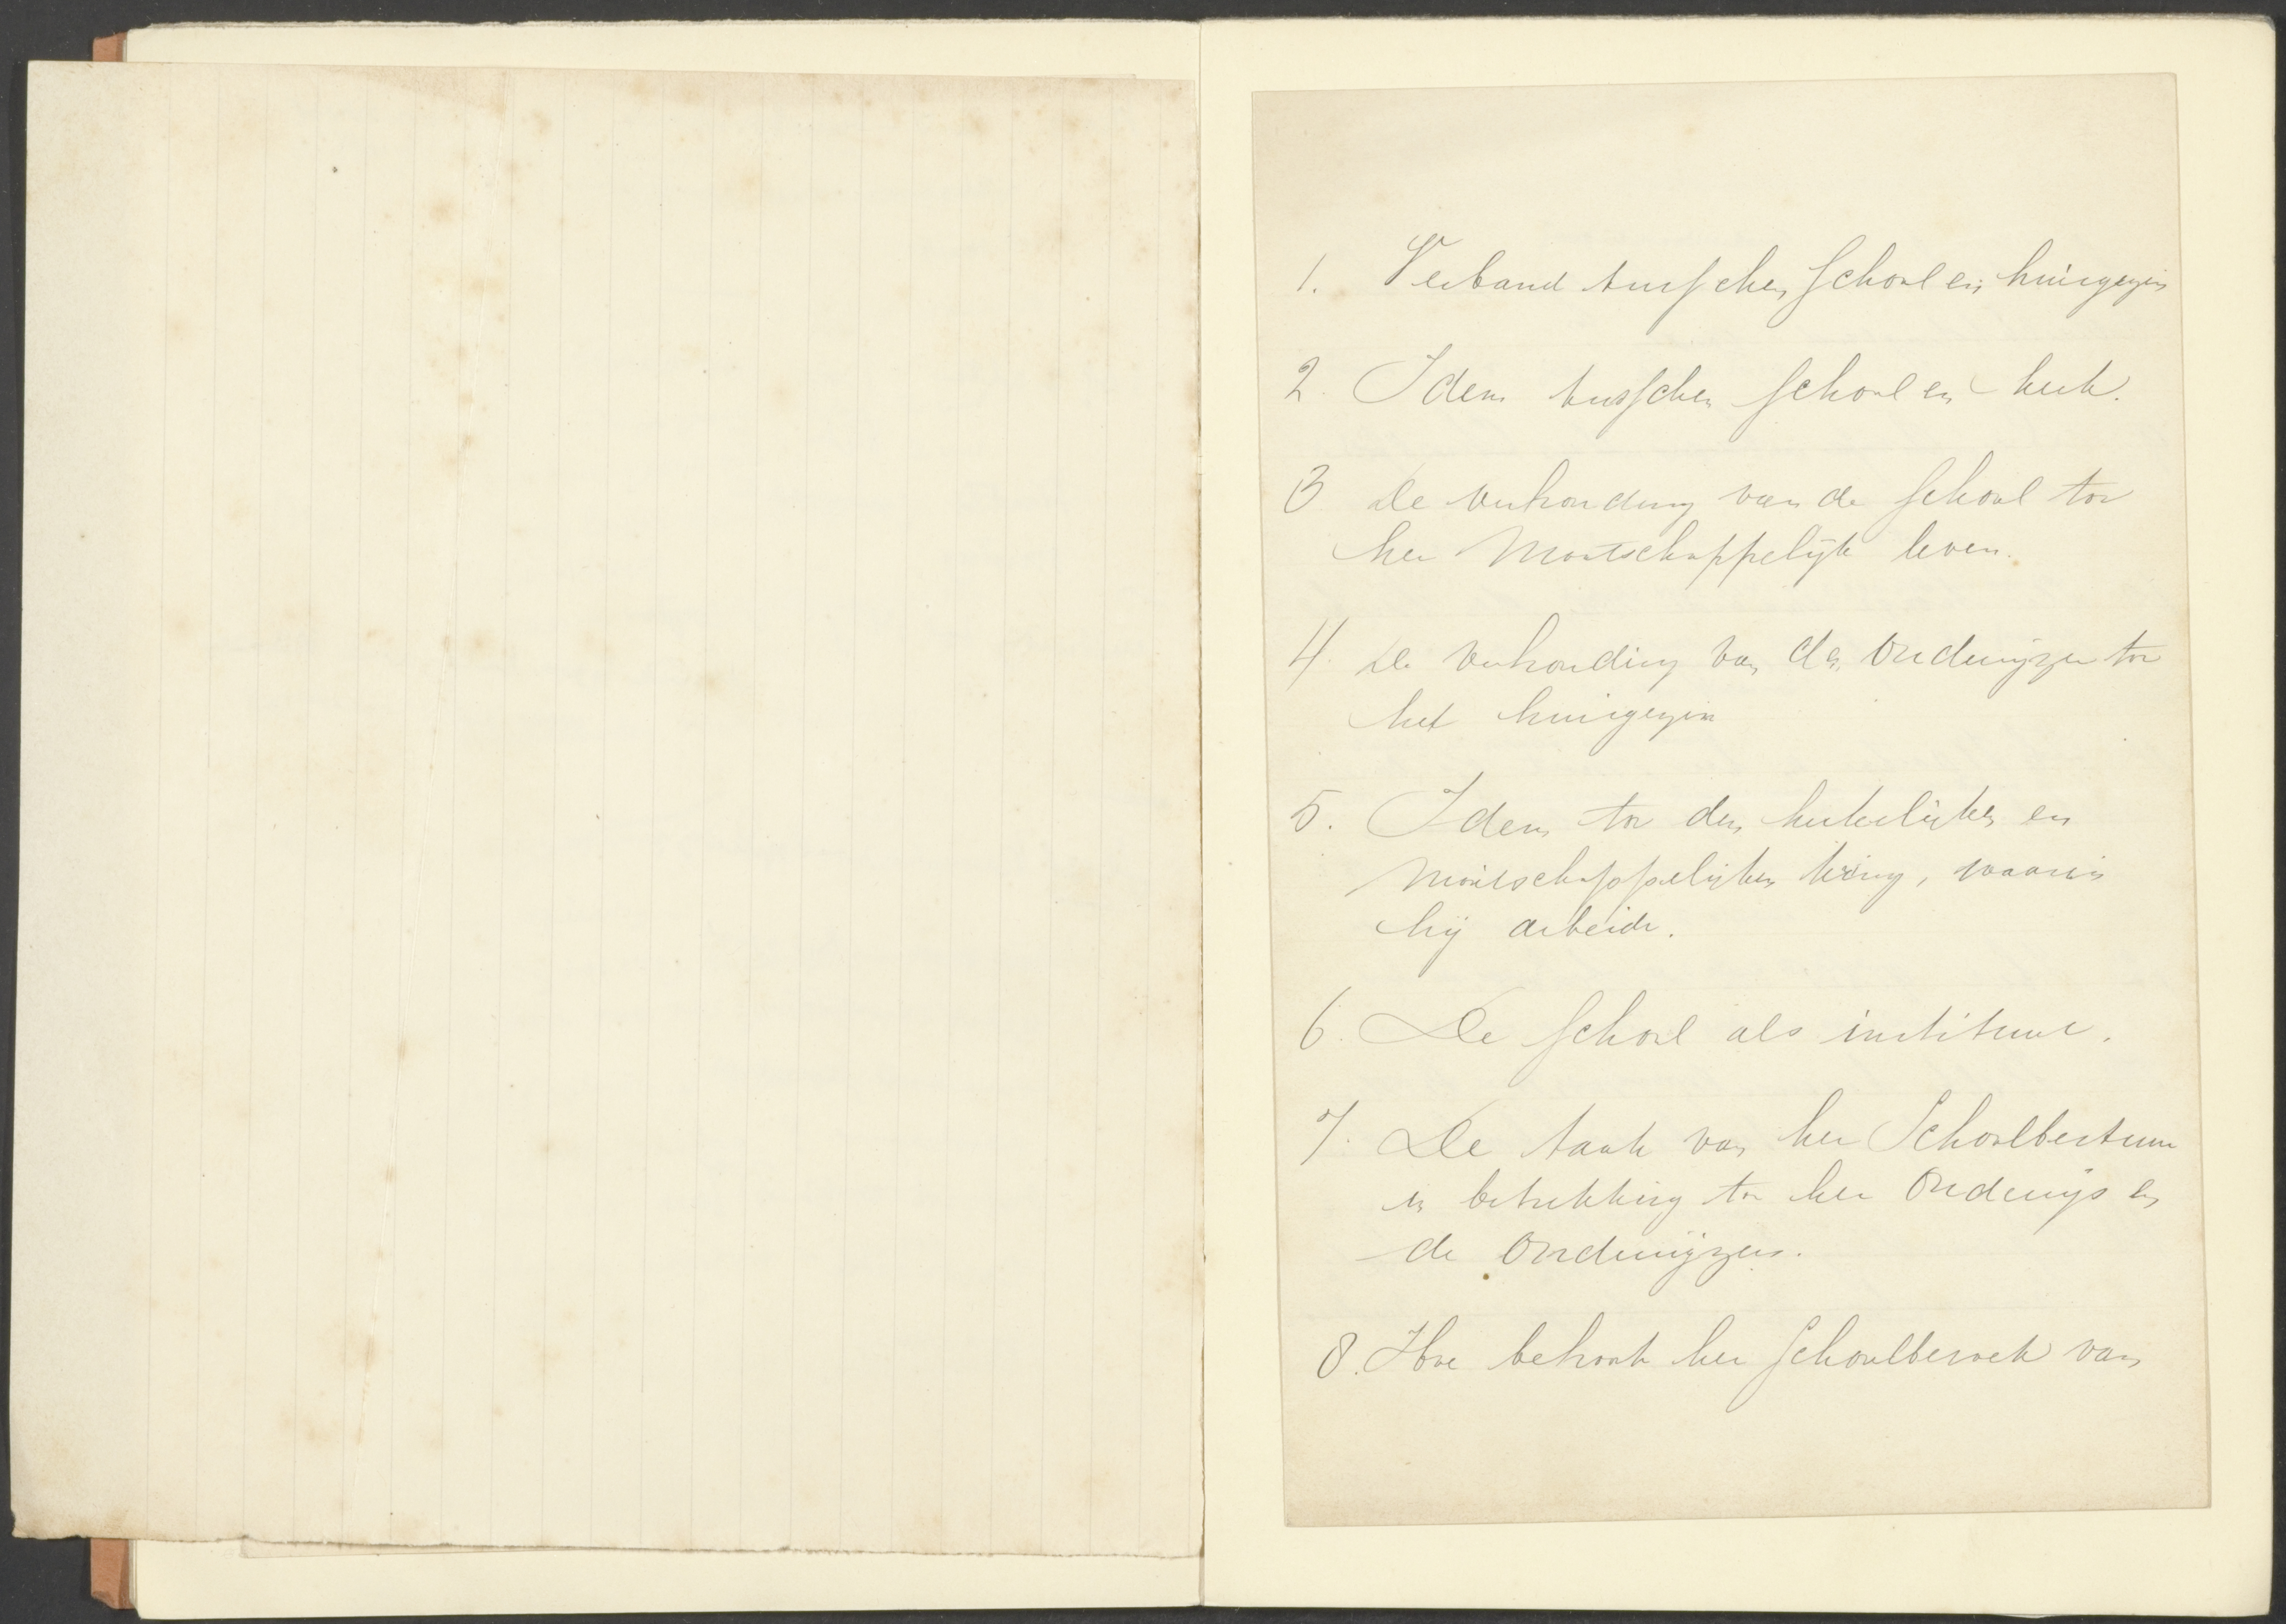 1. Verband tusschen school en huisgezin
2. Idem tusschen school en kerk.
3 De verhouding van de school tot
het Maatschappelijk leven.
4. De verhouding van den Onderwijzer tot
het huisgezin
5. Idem tot den kerkelijken en
Maatschappelijken kring, waarin
hij arbeidt.
6. De school als instituut.
7. De taak van het Schoolbestuur
in betrekking tot het Onderwijs en
de Onderwijzers.
8. Hoe behoort het schoolbezoek van